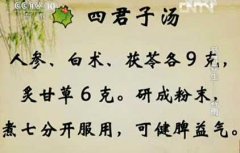 四君子汤
人参、白术、茯苓各9克，
炙甘草6克。研成粉末，
煮七分开服用，可健脾益气。